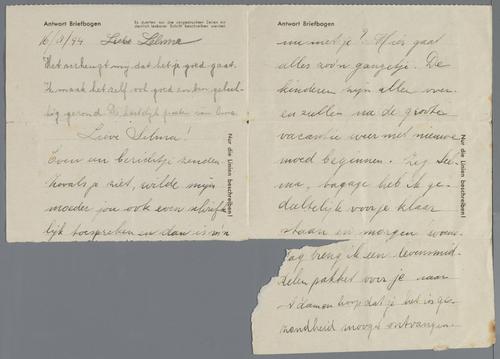 Antwort Briefbogen
Es dürfen nur die vorgedruckten Linien mit deutlich lesbarer Schrift beschrieben werden!
16/9/44 Lieve Selma
Het verheugt mij dat het je goed gaat.
Ik maak het zelf ook goed en ben geluk-
kig gezond. De hartelijk groeten van
Lieve Selma!
Even een berichtje zenden.
Zooals je ziet, wilde mijn
moeder jou ook even schrifte-
lijk toespreken en dan is m'n
Nur die Linien beschreiben!
Antwort Briefbogen
nu met je? Hier gaat
alles zoo'n gangetje. De
kinderen zijn allen over
en zullen na de groote
vacantie weer met nieuwe
moed beginnen. Zeg Sel-
ma, bagage heb ik ge-
deeltelijk voor je klaar
staan en morgen woens-
dag breng ik een levensmid-
delen pakket voor je naar
A'dam en hoop dat je het in ge-
zondheid mooge ontvangen.
Nur die Linien beschreiben!